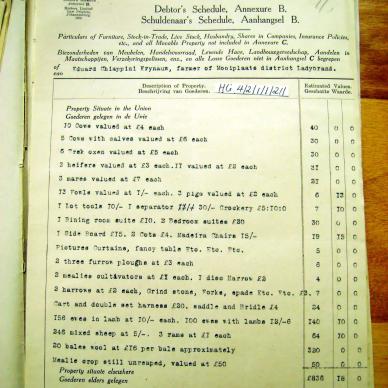 Debtor's Schedule, Annexure B.
Schuldenaar's Schedule, Aanhangsel B.
Particulars of Furniture, Stock-in-Trade, Live Stock, Husbandry, Shares in Companies, Insurance Policies,
etc., and all Movable Property not included in Annexure C
Biezonderheden van Meubelen, Handelsvoorraad, Levende Have, Landbouwgereedschap, Aandelen in
Maatschappijen, Verzekeringspolissen, enz., en alle Losse Goederen niet in Aanhangsel C begrepen
of Eduard Chiappini Wrynauw, farmer of Mooiplaats district Ladybrand.
van
Description of Property.
Beschrijving van Goederen.
HG 4/2/1/1/21
Estimated Value.
Geschatte Waarde.
Property Situate in the Union
Goederen gelegen in de Unie
10 Cows valued at £4 each 40 0 0
5 Cows with calves valued at £6 each 30 0 0
6 Trek oxen valued at £5 each 30 0 0
2 heifers valued at £3 each. 11 valued at £2 each
3 mares valued at £7 each 21 0 0
13 Fowls valued at 1/- each. 3 pigs valued at £2 each 6 13
1 Lot tools 10/- 1 separator 30/- Crockery £5:10:0 7 10 0
1 Dining room suite £10. 2 Bedroom suites £20 30 0 0
1 Side Board £15. 2 Cots £4. Madeira Chairs 15/- 19 15
Pictures Curtains, fancy table Etc. Etc. Etc. 5 0 0
2 three furrow ploughs at £3 each 6 0 0
2 mealies cultivators at £1 each. 1 disc Harrow £2 4 0 0
2 harrows at £2 each, Grind stone, Forks, spade Etc. Etc. 7 0 0
Cart and double set harness £20. saddle and Bridle £4 24 0 0
156 ewes in lamb at 10/- each. 100 ewes with lambs 12/-6 140 10 0
246 mixed sheep at 5/-. 3 rams at £1 each 64 10 0
20 bales wool at £16 per bale approximately 320 0 0
Mealie crop still unreaped, valued at £50 50 0 0
Property situate elsewhere
Goederen elders gelegen
£836 18 0